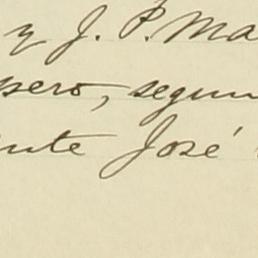 y J. P. Ma
pero, segun
nte José